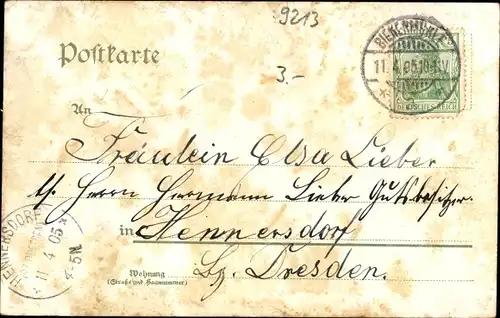 9213
Postkarte
3.-
BIENENMÜHLE
11. 4. 05. 10-11V.
DEUTSCHES REICH
An
Fräulein Elsa Lieber
Herrn Hermann Lieber Gutsbesitzer.
in Hennersdorf
Bz. Dresden.
HENNERSDORF
11 4 05
4-5N
Wohnung
(Straße und Hausnummer)